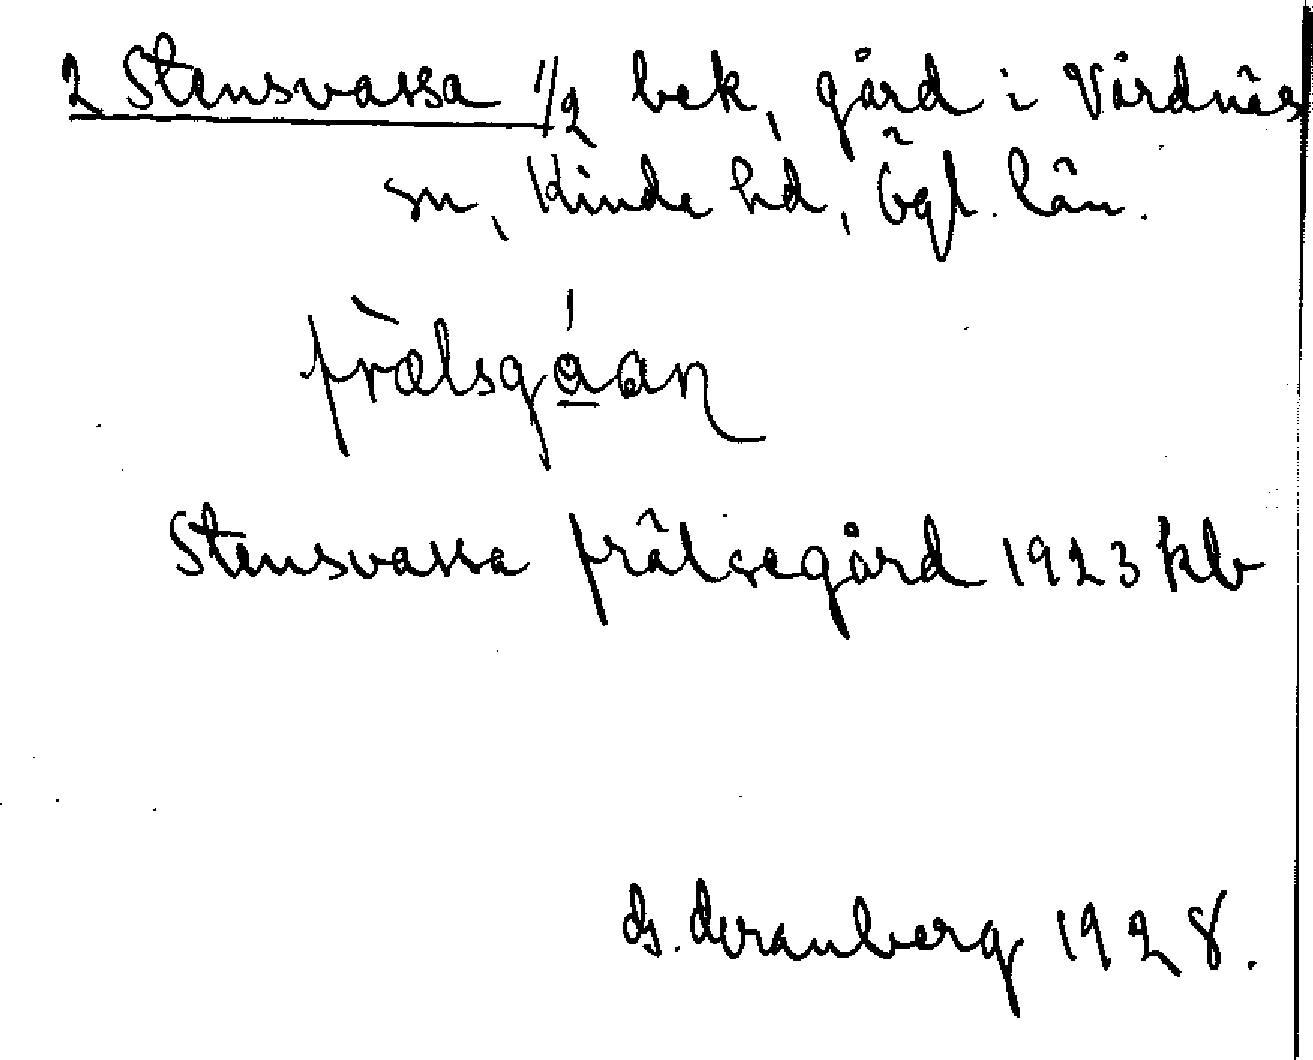 2 Stensvassa 1/2 bek, gård i Vårdnäs
sn, Kinda hd, Ögl. län.
frälsgǻan
Stensvassa frälsegård 1923 kb
1928.